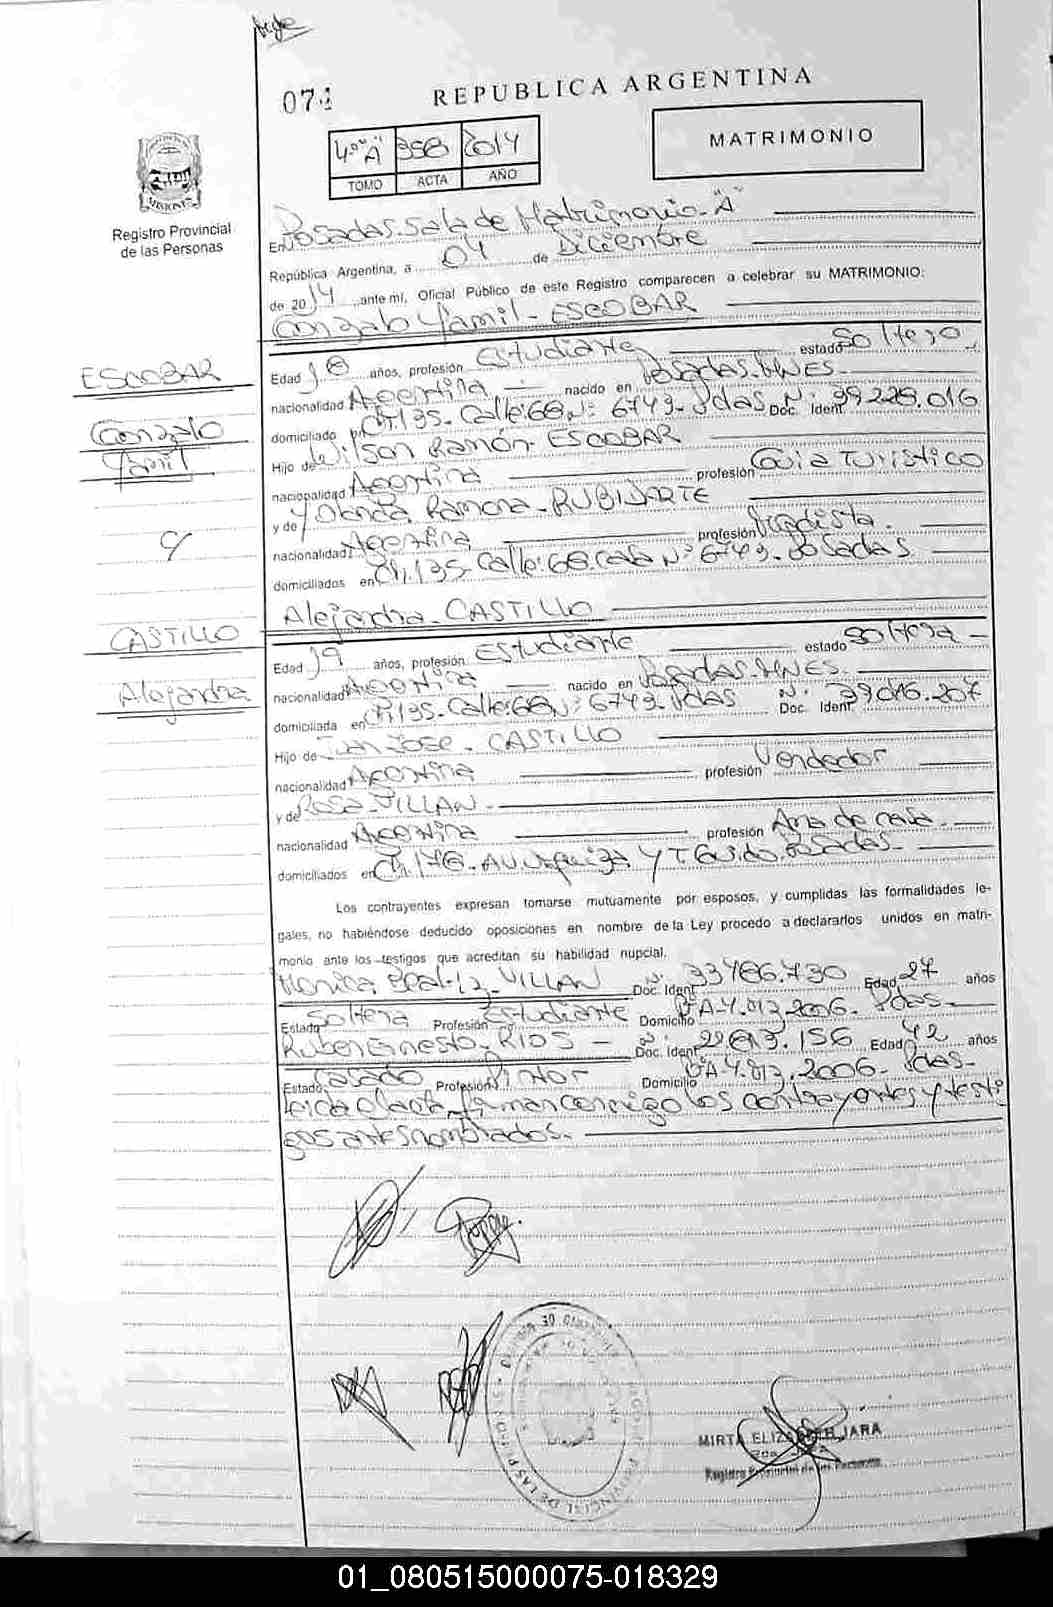 074
REPUBLICA ARGENTINA
4º "A" 358 2014
TOMO ACTA AÑO
MATRIMONIO
MISIONES
Registro Provincial
de las Personas
En Posadas. Sala de Matrimonio - "A"
República Argentina, a 04 de Diciembre
de 2014 ante mí, Oficial Público de este Registro comparecen a celebrar su MATRIMONIO:
Gonzalo Yamil - ESCOBAR
ESCOBAR
Gonzalo
Yamil
Edad 18 años, profesión Estudiante estado Soltero
nacionalidad Argentina nacido en Posadas. MNES.
domiciliado en Ch. 135. Calle: 68 Nº: 6749. Pdas Doc. Ident Nº: 39.228.016
Hijo de Wilson Ramón. ESCOBAR
nacionalidad Argentina profesión Guia Turístico
y de Yolanda Ramona. RUBIDARTE
nacionalidad Argentina profesión
domiciliados en Ch. 135. Calle: 68. Casa Nº 6749. Posadas
Alejandra - CASTILLO
y
CASTILLO
Alejandra
Edad 19 años, profesión Estudiante estado Soltera
nacionalidad Argentina nacido en Posadas. MNES.
domiciliada en Ch. 135. Calle: 68 Nº: 6749. Pdas Doc. Ident Nº: 39.046.207
Hijo de Juan José. CASTILLO
nacionalidad Argentina profesión Vendedor
y de Rosa. VILLAN
nacionalidad Argentina profesión Ama de casa
domiciliados en Ch. 176. Av. Urquiza y Posadas.
Los contrayentes expresan tomarse mutuamente por esposos, y cumplidas las formalidades le-
gales, no habiéndose deducido oposiciones en nombre de la Ley procedo a declararlos unidos en matri-
monio ante los testigos que acreditan su habilidad nupcial.
Monica VILLAN Doc. Ident Nº: 33.486.730 Edad 27 años
Estado Soltera Profesión Estudiante Domicilio Pdas.
Ruben Ernesto. RIOS Doc. Ident Nº: 22.613.156 Edad 42 años
Estado Casado Profesión Pintor Domicilio Pdas.
Leida el acta, firman conmigo los contrayentes y testi
gos antes nombrados.
MIRTA ELIZABETH JARA
Registro Provincial de las Personas
01_080515000075-018329